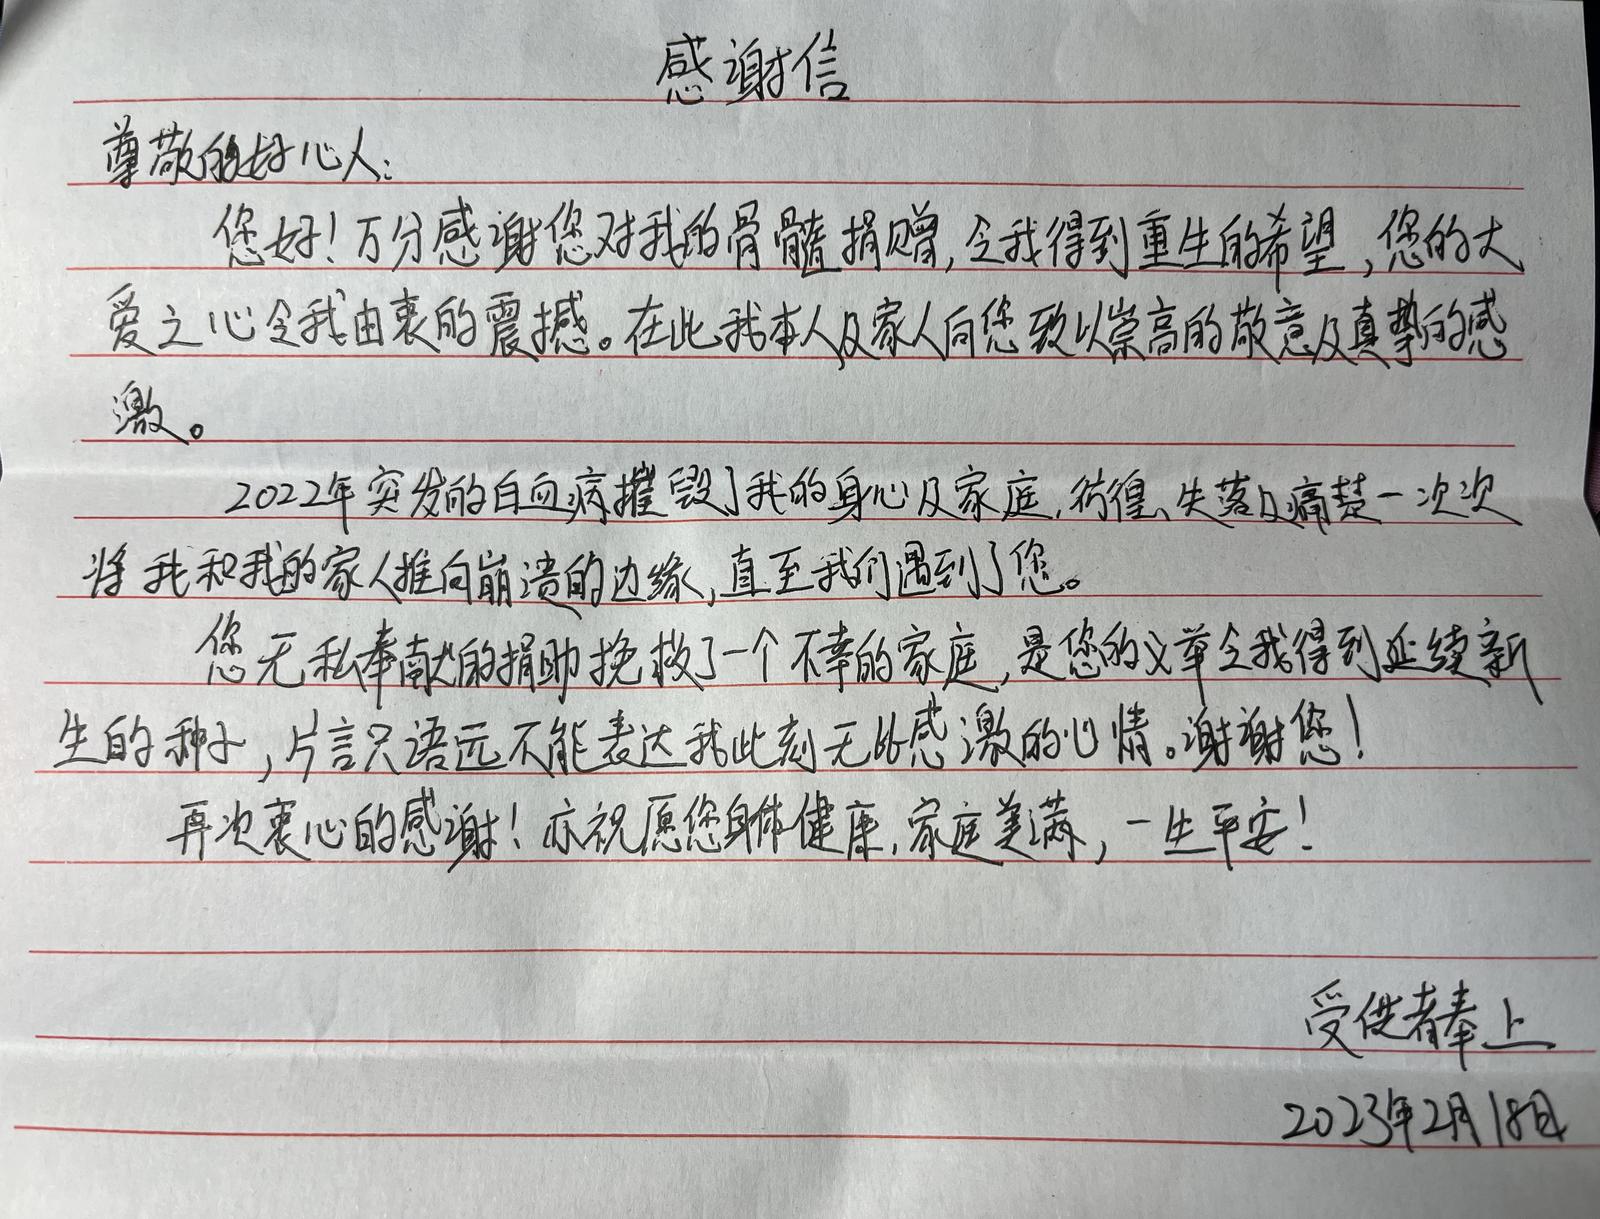 感谢信
尊敬的好心人:
您好!万分感谢您对我的骨髓捐赠,令我得到重生的希望,您的大
爱之心令我由衷的震撼。在此我本人及家人向您致以崇高的敬意及真挚的感
激。
2022年突发的白血病摧毁了我的身心及家庭,彷徨、失落及痛楚一次次
将我和我的家人推向崩溃的边缘,直至我们遇到了您。
您无私奉献的捐助挽救了一个不幸的家庭,是您的义举令我得到延续新
生的种子,片言只语远不能表达我此刻无比感激的心情。谢谢您!
再次衷心的感谢!亦祝愿您身体健康,家庭美满,一生平安!
受供者奉上
2023年2月18日